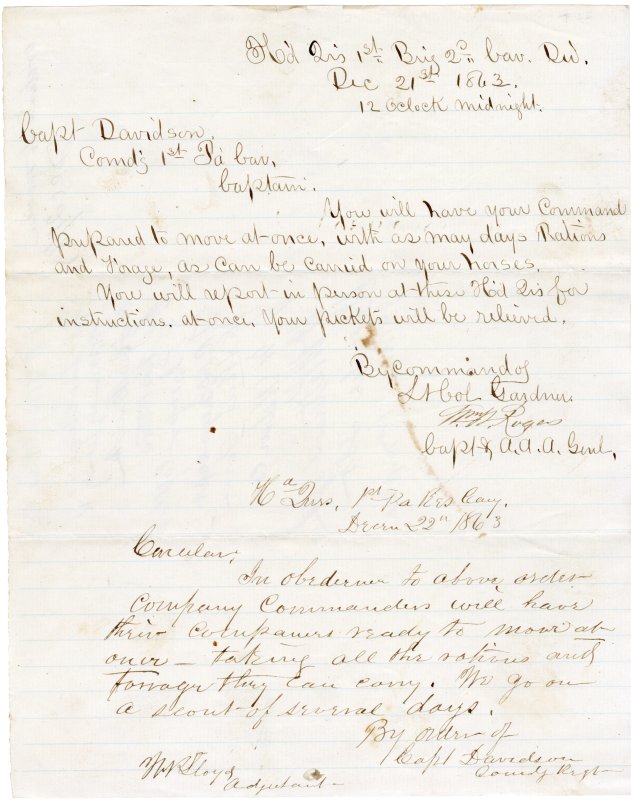 Hd Qrs 1st Brig 2d Cav. Div.
Dec 21st 1863.
12 Oclock midnight.
Capt Davidson.
Comd'g 1st Pa Cav.
Captain.
You will have your Command
prepared to move at once, with as may days Rations
and Forage, as can be carried on your horses.
You will report in person at these Hd Qrs for
instructions. at once. Your pickets will be relieved.
By command of
Lt Col Gardner.
Wm W. Rogers
Capt & A. A. A. Genl.
Hd Qurs. 1st Pa Res Cavy.
Decem 22nd 1863
Circular,
In obedience to above order
company Commanders will have
their companies ready to move at
once – taking all the rations and
forrage they can carry. We go on
a scout of several days.
By order of
Capt Davidson
Comdg Regt
Lloyd
Adjutant